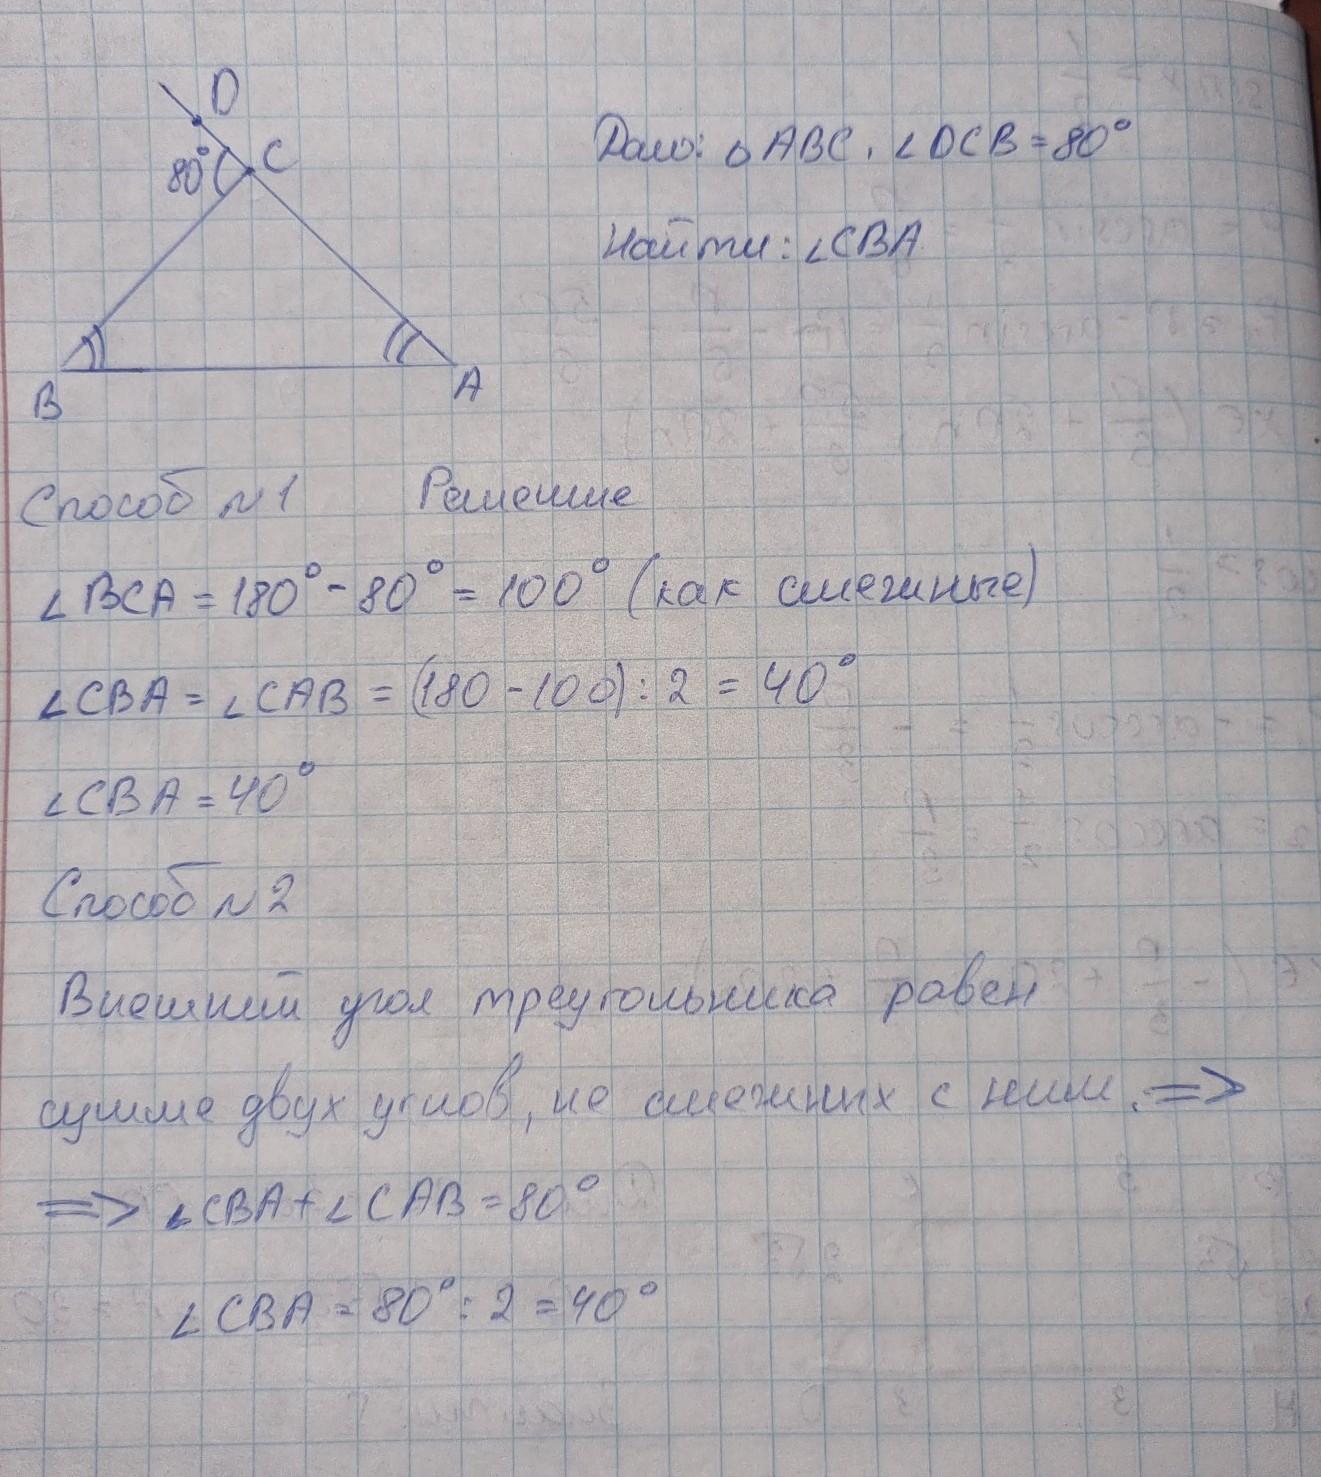 D
80°
C
B
A
Дано: △ABC, ∠DCB = 80°
Найти: ∠CBA
Способ №1 Решение
∠BCA = 180° - 80° = 100° (как смежные)
∠CBA = ∠CAB = (180 - 100) : 2 = 40°
∠CBA = 40°
Способ №2
Внешний угол треугольника равен
сумме двух углов, не смежных с ним. =>
=> ∠CBA + ∠CAB = 80°
∠CBA = 80° : 2 = 40°